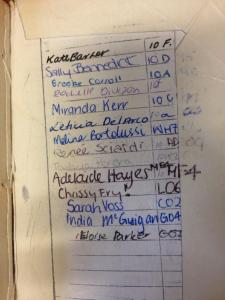 Kate Barker 10 F.
Sally Bennedict 10 D
Brooke Carroll 10 A
Danielle Dickson 10
Miranda Kerr 10 G
Leticia DelArco
Melina Bortolussi WHT
Renee Sciardi
Adelaide Hayes
Chrissy Fry! LO6
Sarah Voss CO2
India McGuigan GO4
Eloise Parker GO3